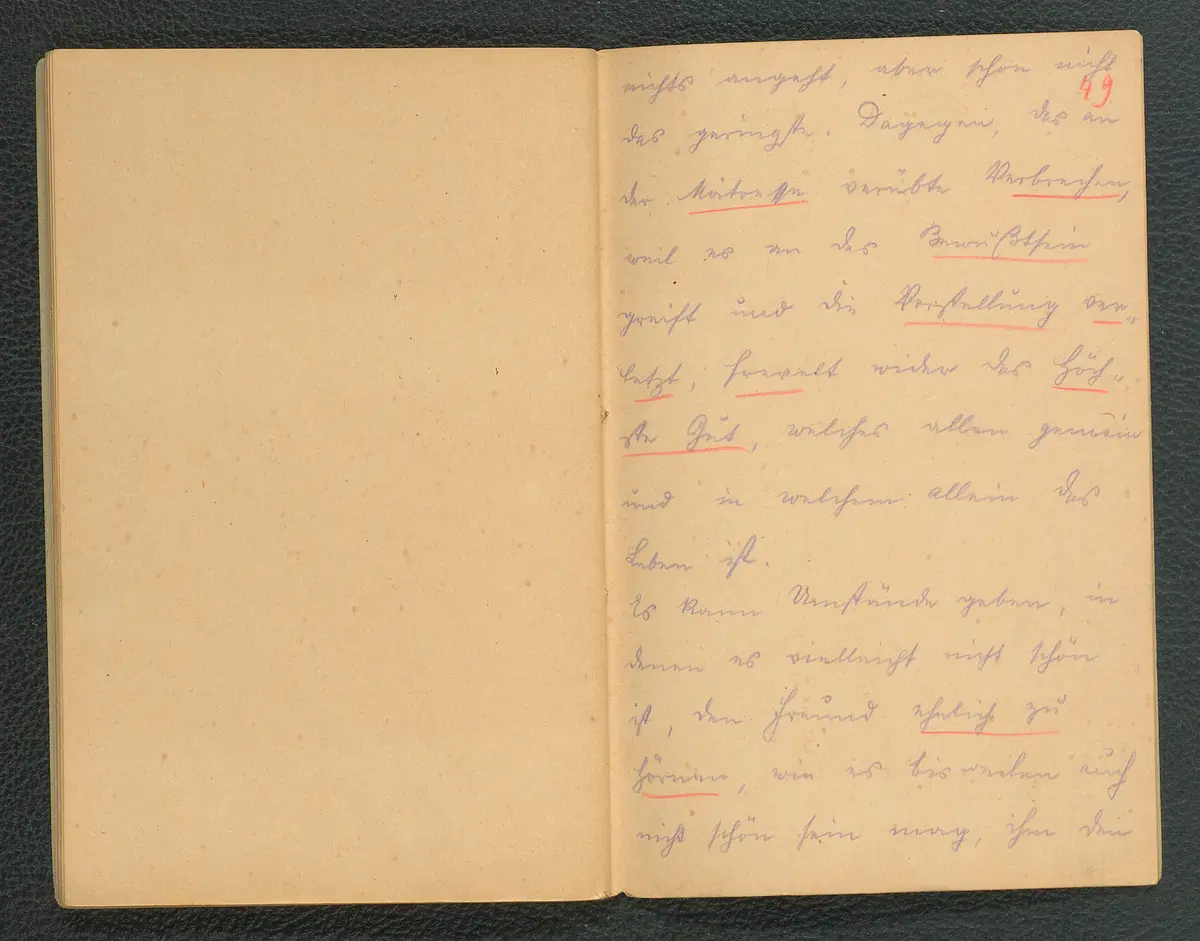 nichts angeht, aber schon nicht
49
das geringste. Dagegen, das an
der Mätresse verübte Verbrechen,
weil es an das Bewußtsein
greift und die Vorstellung ver„
letzt, frevelt wider das Höch„
ste Gut, welches allen gemein
und in welchem allein das
Leben ist.
Es kann Umstände geben, in
denen es vielleicht nicht schön
ist, den Freund ehelich zu
hörnen, wie es bisweilen auch
nicht schön sein mag, ihm den